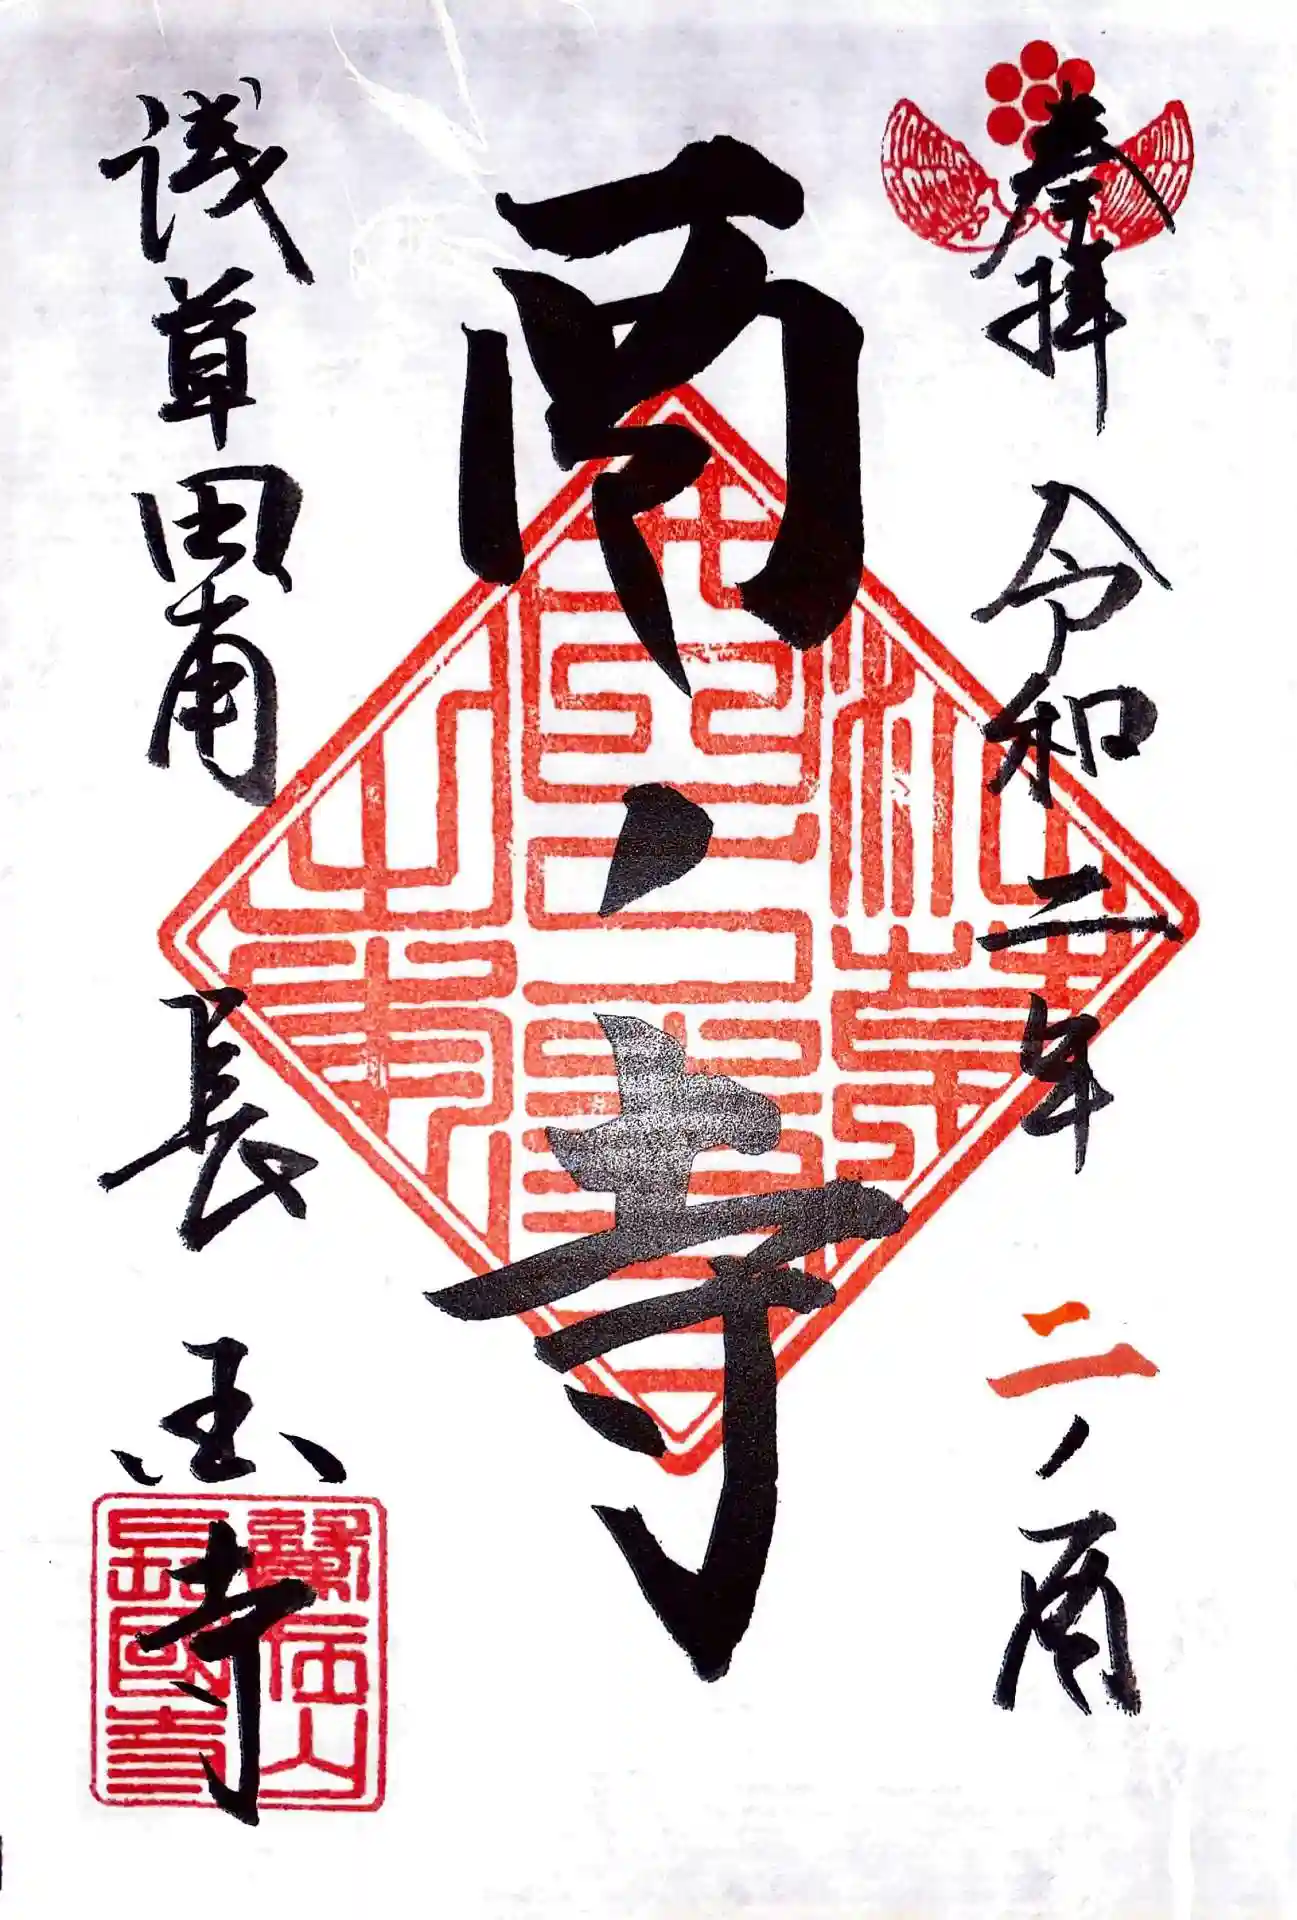 奉拝 令和二年 二ノ酉
酉ノ寺
浅草田甫 長国寺
鷲在山
長國寺